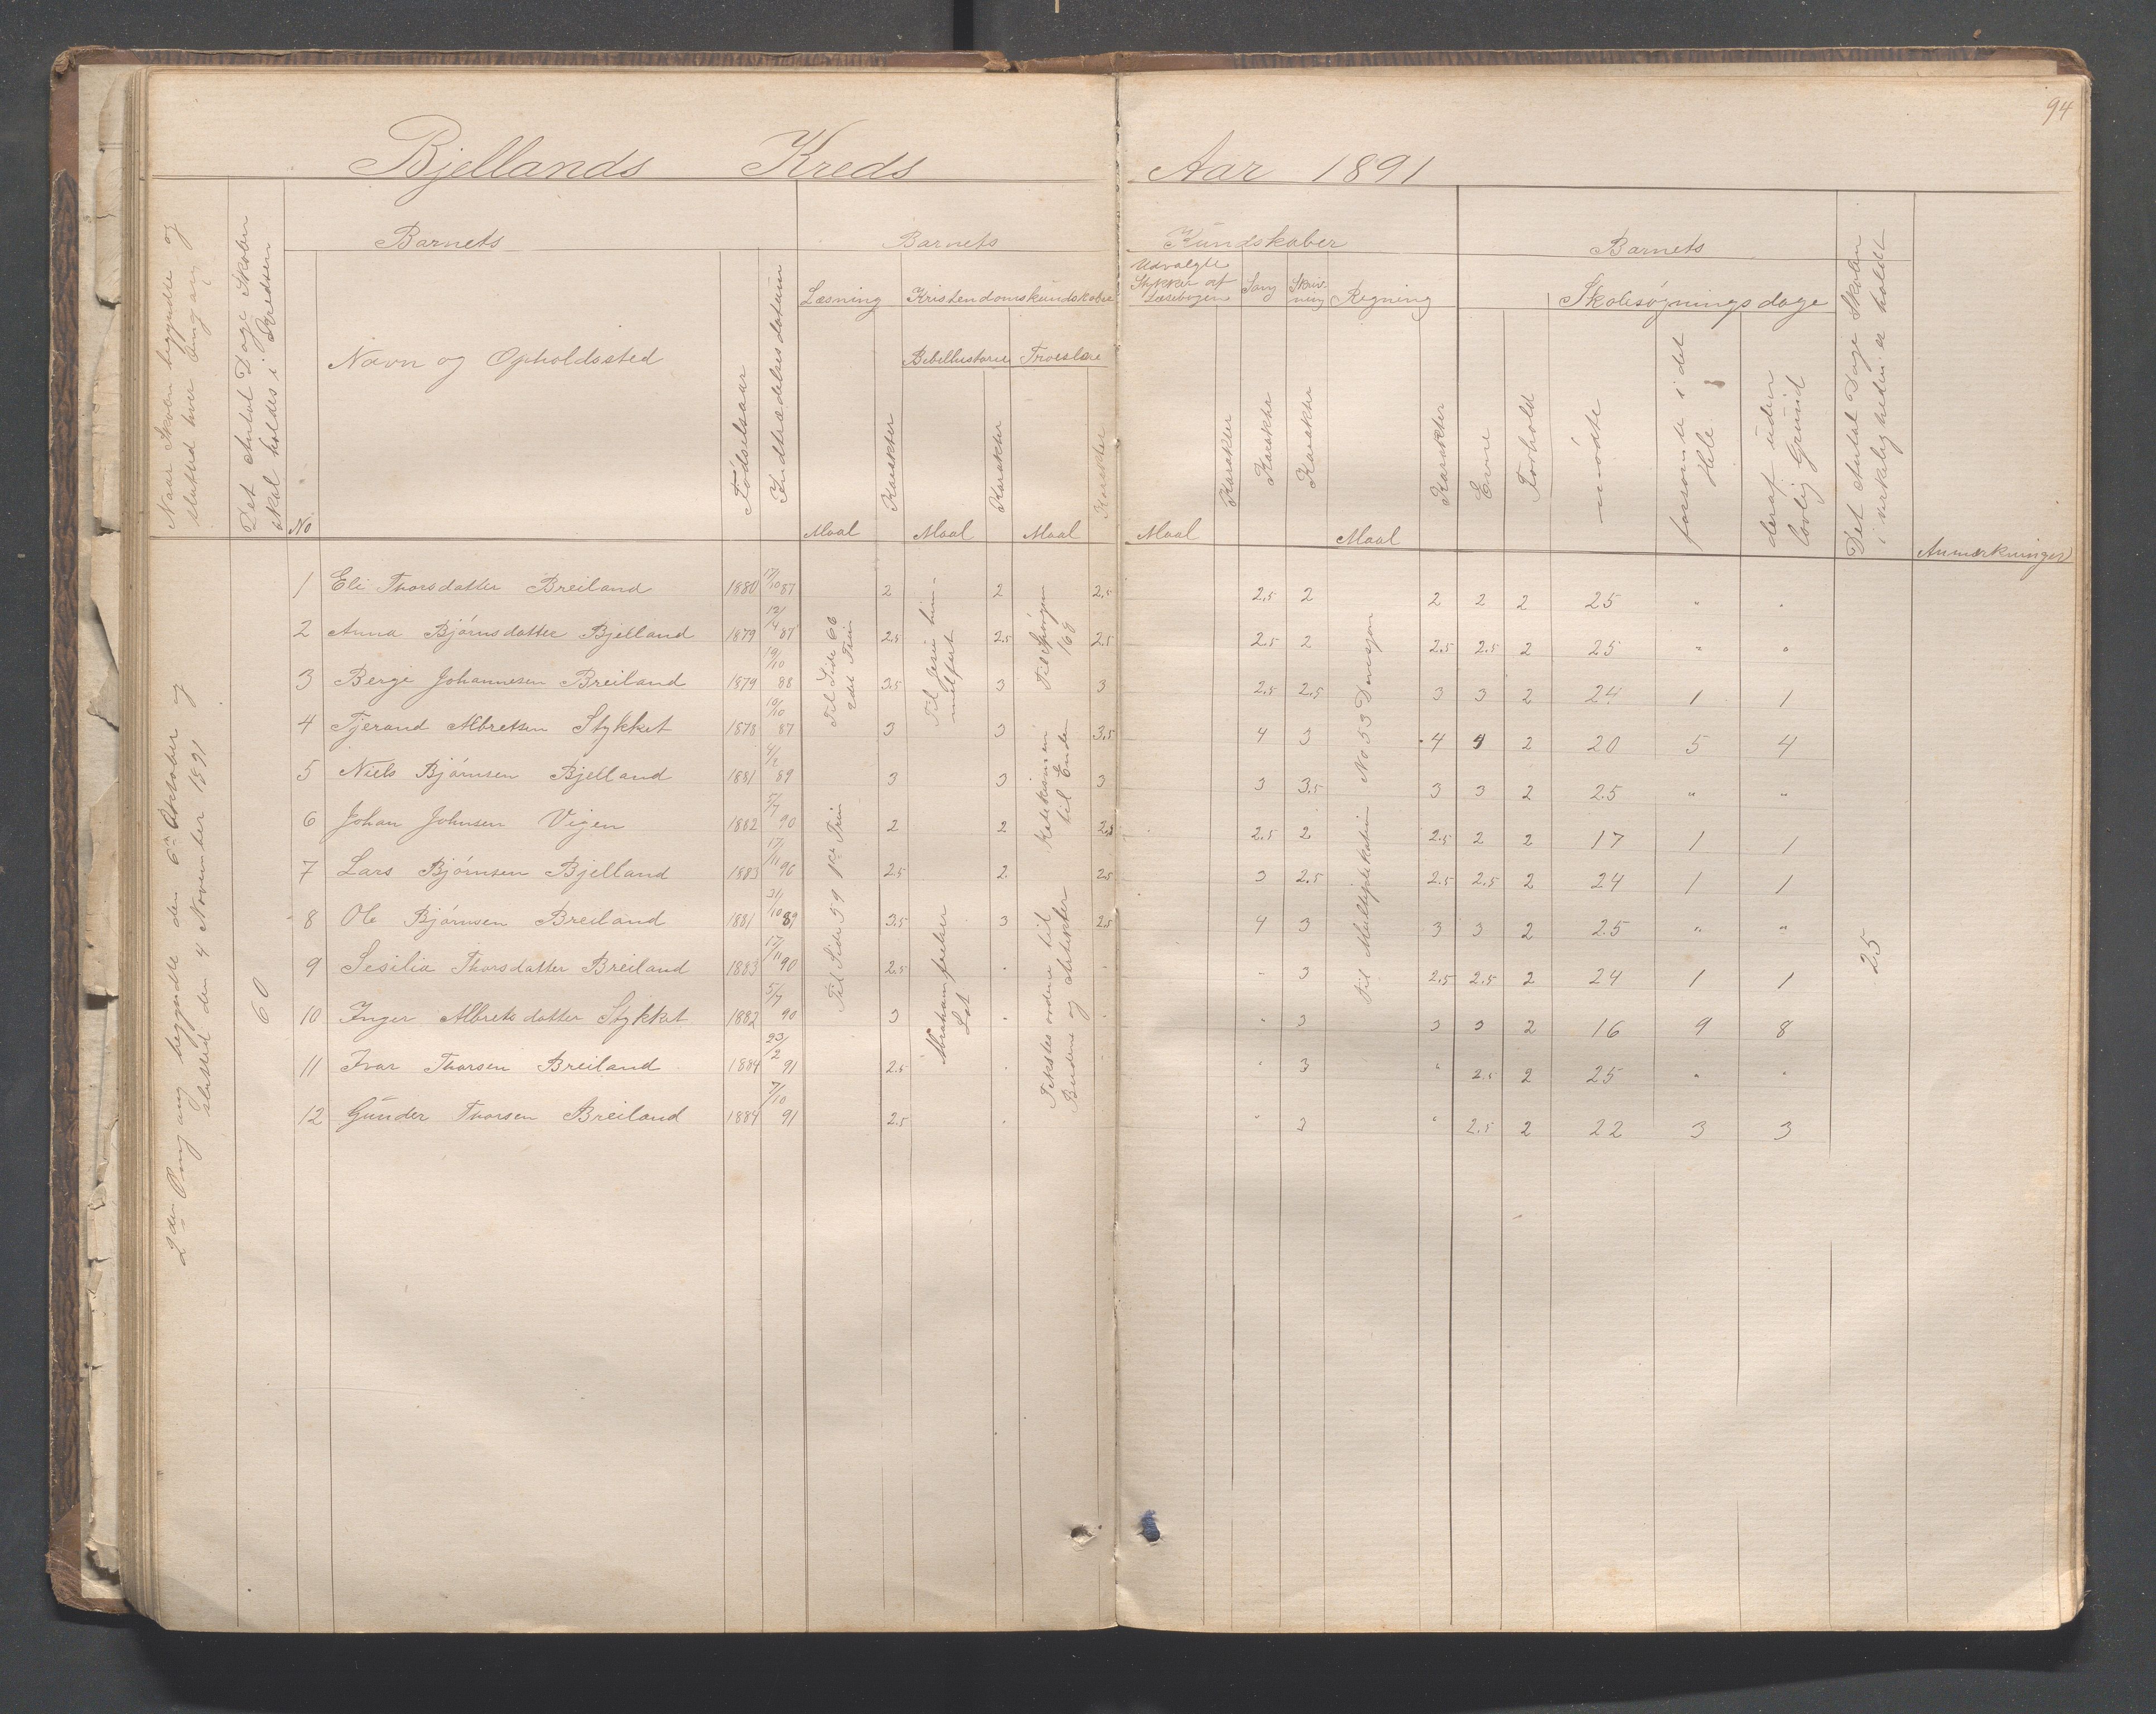 94
Bjellands Kreds Aar 1891
Naar Skolen begyndte og
slutted hver Omgang
Det Antal Dage Skolen
skal holdes i Kredsen
Barnets Barnets Kundskaber Barnets
No Navn og Opholdssted Fødselsaar Indtrædelsesdatum
Læsning Kristendomskundskaber
Bibelhistorie Troeslære
Udvalgte
Stykker af
Læsebogen
Sang Skriv-
ning Regning
Skolesøgningsdage
Maal Karakter Maal Karakter Maal Karakter Maal Karakter Karakter Karakter Maal Karakter Evne Forhold mødte
forsømte i det
Hele
deraf uden
lovlig Grund
Det Antal Dage Skolen
i virkeligheden er holdt
Anmærkninger
2den Omgang begyndte den 6te Oktober og
slutted den 4 November 1891
60
1 Eli Thorsdatter Breiland 1880 17/10 87 2 2 2.5 2.5 2 2 2 2 25 " "
2 Anna Bjørnsdatter Bjelland 1879 12/4 87 2.5 2.5 2.5 2.5 2 2.5 2.5 2 25 " "
3 Berge Johannesen Breiland 1879 19/10 88 3.5 3 3 2.5 2.5 3 3 2 24 1 1
4 Tjerand Albretsen Stykket 1878 10/10 87 3 3 3.5 4 3 4 4 2 20 5 4
5 Niels Bjørnsen Bjelland 1881 4/2 89 3 3 3 3 3.5 3 3 2 25 " "
6 Johan Johnsen Vigen 1882 5/7 90 2 2 2.5 2.5 2 2.5 2 2 17 1 1
7 Lars Bjørnsen Bjelland 1883 17/11 90 2.5 2 2.5 3 2.5 2.5 2.5 2 24 1 1
8 Ole Bjørnsen Breiland 1881 31/10 89 3.5 3 2.5 4 3 3 3 2 25 " "
9 Sesilia Thorsdatter Breiland 1883 17/11 90 2.5 " " " 3 2.5 2.5 2 24 1 1
10 Inger Albretsdatter Stykket 1882 5/7 90 3 " " " 3 3 3 2 16 9 8
11 Ivar Thorsen Breiland 1884 23/2 91 2.5 " " " 3 " 2.5 2 25 " "
12 Gunder Thorsen Breiland 1884 7/10 91 2.5 " " 3 " 2.5 2 22 3 3
Til Side 66
2det Trin
Til Side 59 1ste Trin
Til Jesu him-
melfart
Abraham feeler
Lot
Til Spørgsm
168
Katekismen
til Enden
Tekstes ordene til
Budene og Artikler
Til Multiplikation No 53
25